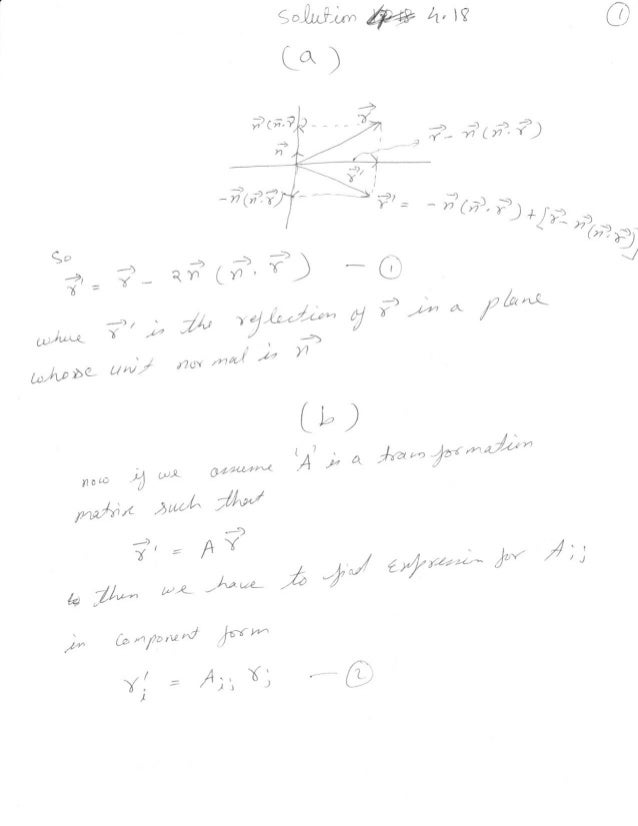 Solution 4.18
①
(a)
n⃗(n⃗.r⃗)
r⃗
r⃗ - n⃗(n⃗.r⃗)
n⃗
r⃗''
-n⃗(n⃗.r⃗)
r⃗' = -n⃗(n⃗.r⃗) + [r⃗ - n⃗(n⃗.r⃗)]
So
r⃗' = r⃗ - 2n⃗(n⃗.r⃗) — ①
where r⃗' is the reflection of r⃗ in a plane
whose unit normal is n⃗
(b)
now if we assume 'A' is a transformation
matrix such that
r⃗' = A r⃗
then we have to find expression for Aij
in component form
r'i = Aij rj — ②